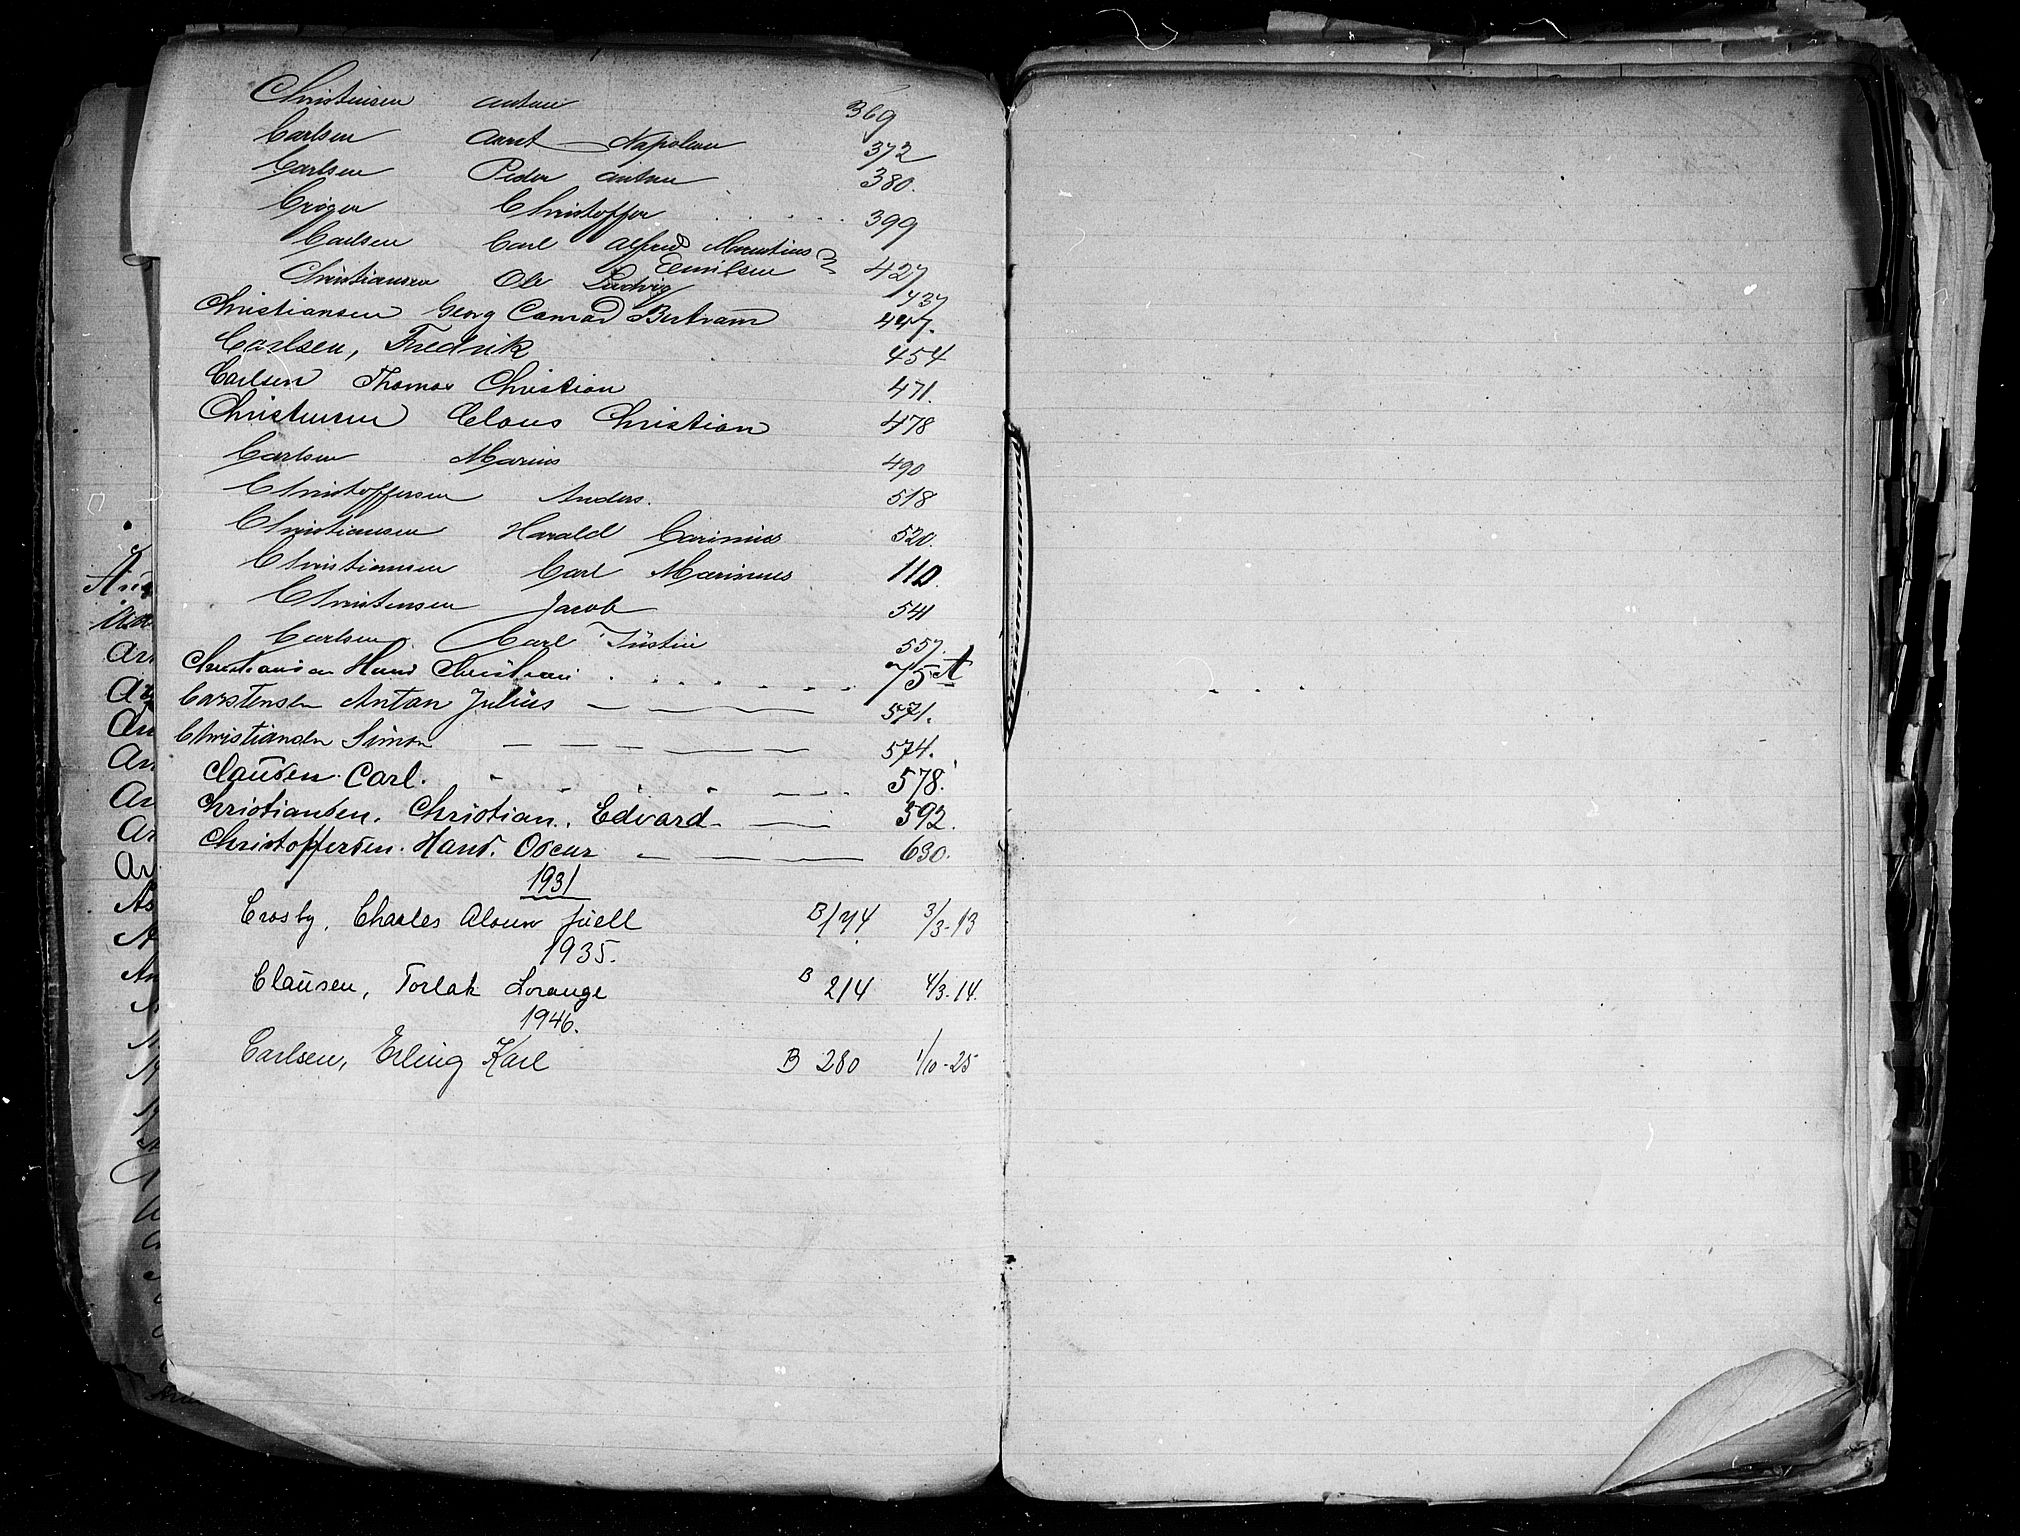 Christensen Anton 369
Carlsen Arnt Napoleon 372
Carlsen Peder Anton 380.
Crøger Christoffer 399
Carlsen Carl Alfred Mauritius
Emilsen 427
Christiansen Ole Ludvig 437
Christiansen Georg Conrad Bertram 447.
Carlsen, Fredrik 454
Carlsen Thomas Christian 471.
Christensen Claus Christian 478
Carlsen Marius 490
Christoffersen Anders. 518
Christiansen Harald Carinius 520.
Christiansen Carl Marinius 110.
Christensen Jacob 541
Carlsen Carl Justin 557.
Christiansen Hans Christian 75 A
Carstensen Anton Julius 571.
Christiansen Simon 574.
Clausen. Carl. 578.
Christiansen. Christian. Edvard 592.
Christoffersen. Hans. Oscar 630.
1931
Crosby, Charles Juell B 174 3/3-13
1935.
Clausen, Torlak Lorange B 214 4/3-14.
1946.
Carlsen, Erling Karl B 280 1/10-25